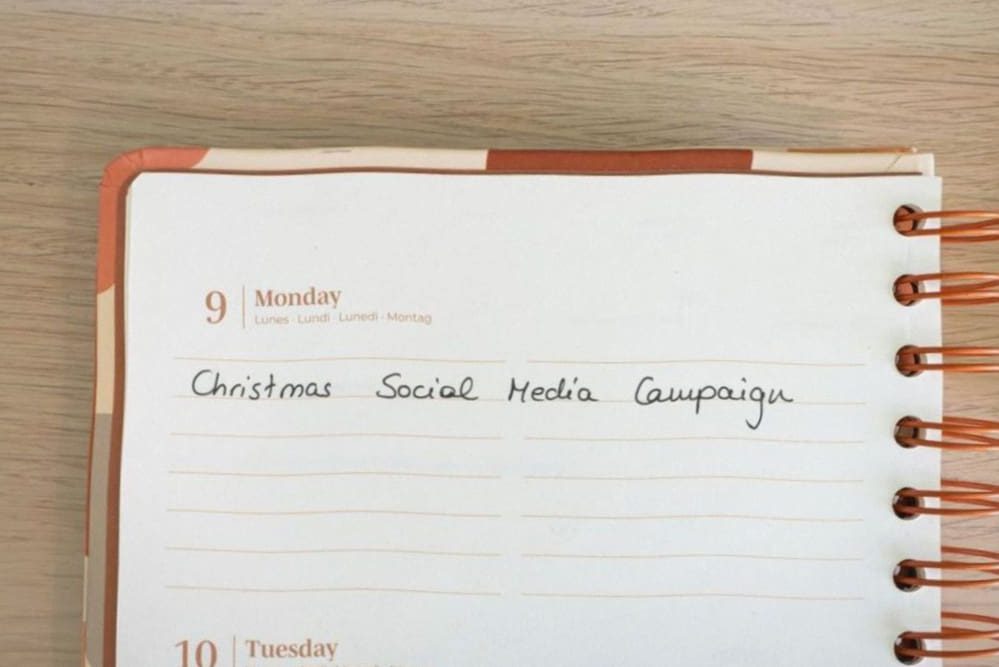 9 Monday
Lunes · Lundi · Lunedì · Montag
Christmas Social Media Campaign
10 Tuesday